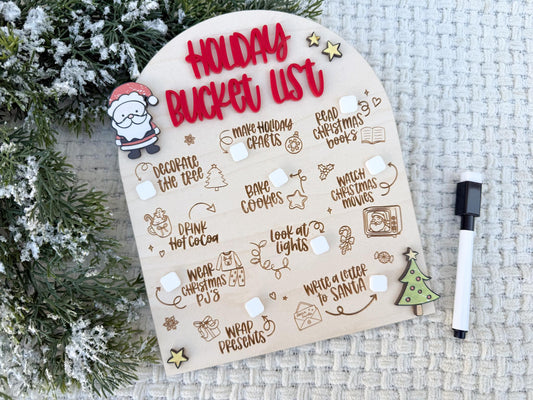 HOLIDAY
BUCKET LIST
MAKE HOLIDAY
CRAFTS
READ
CHRISTMAS
BOOKS
DECORATE
THE TREE
BAKE
COOKIES
WATCH
CHRISTMAS
MOVIES
DRINK
HOT COCOA
LOOK AT
LIGHTS
WEAR
CHRISTMAS
PJ'S
WRITE A LETTER
TO SANTA
WRAP
PRESENTS